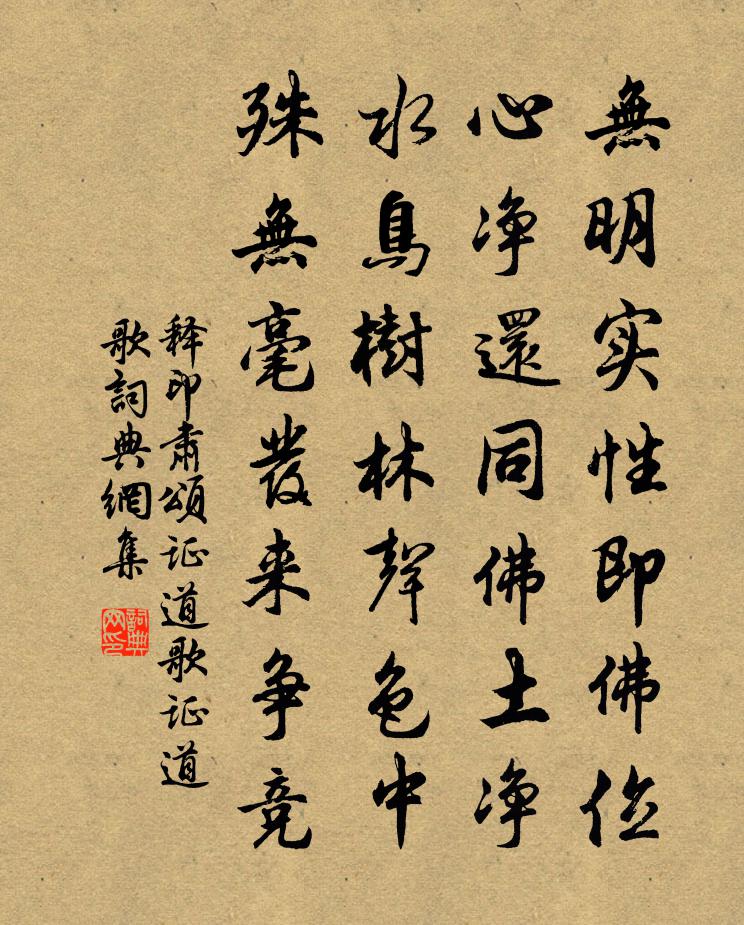 無明实性即佛位
心净還同佛土净
水鳥樹林聲色中
殊無毫發来争竞
释印肅頌证道歌证道
歌詞典網集
詞典网印